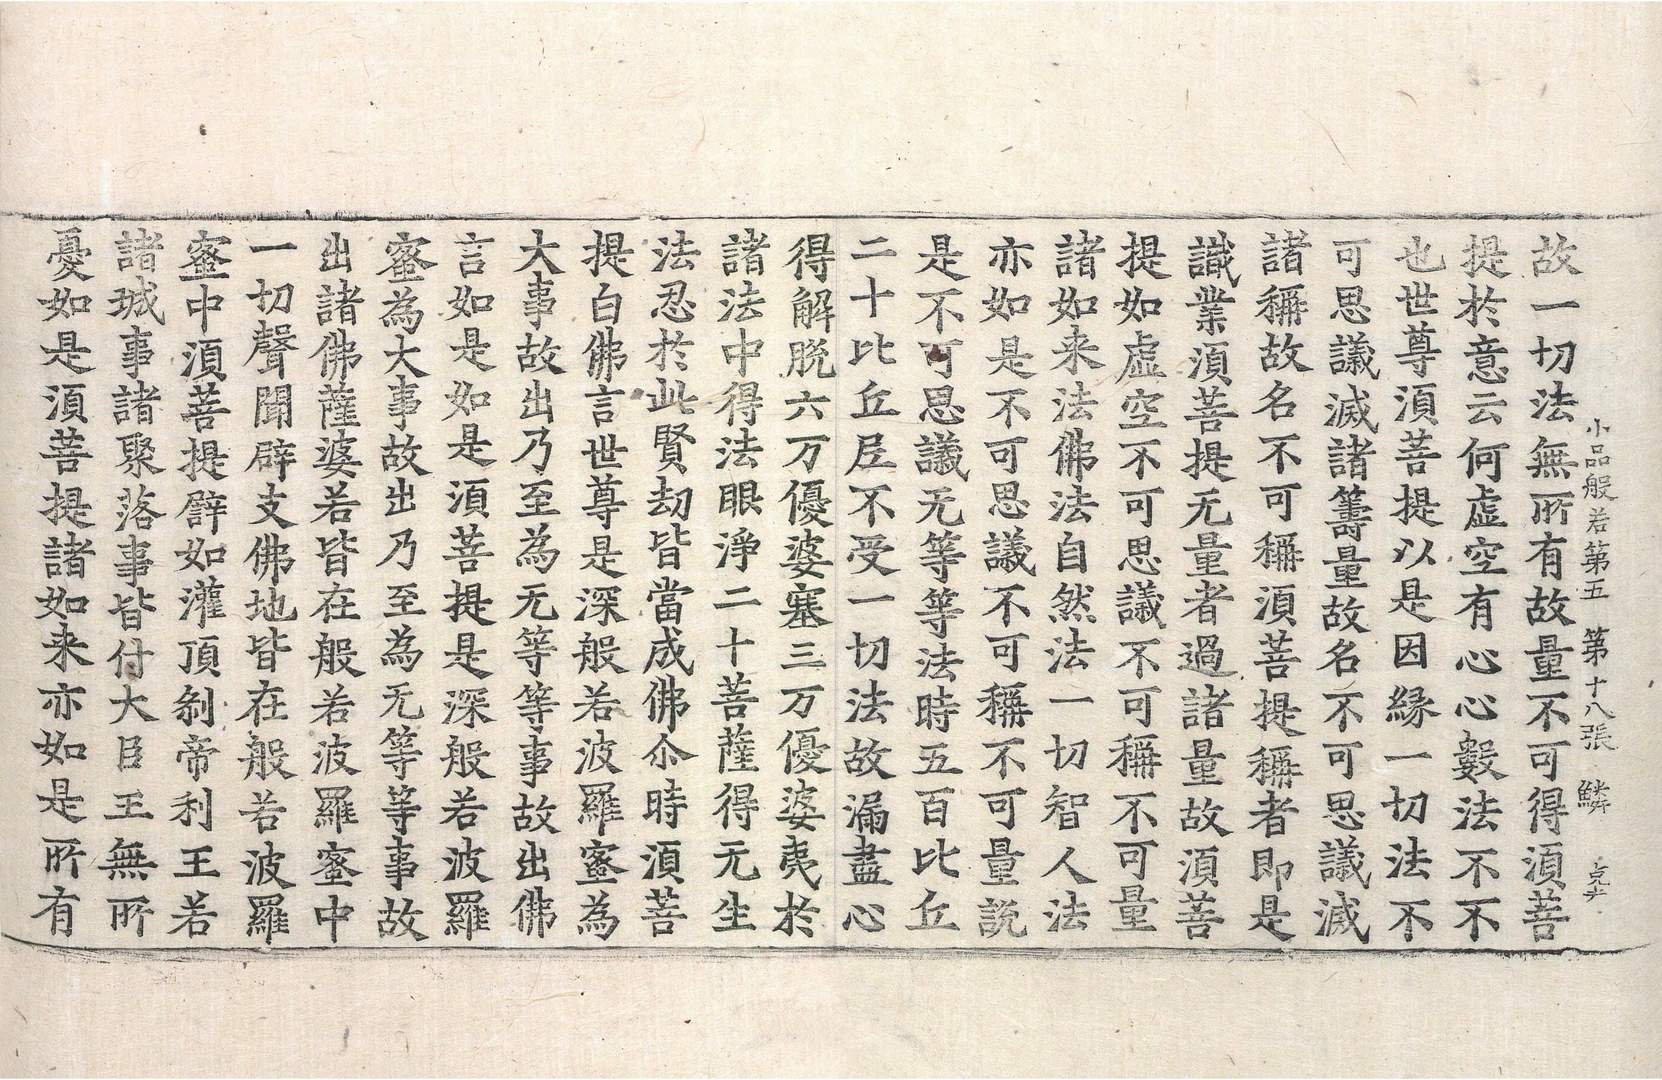 小品般若第五　第十八張　鱗
故一切法無所有故量不可得湏菩
提扵意云何虛空有心心數法不不
也世尊湏菩提以是因緣一切法不
可思議滅諸籌量故名不可思議滅
諸稱故名不可稱湏菩提稱者即是
識業湏菩提无量者過諸量故湏菩
提如虛空不可思議不可稱不可量
諸如来法佛法自然法一切智人法
亦如是不可思議不可稱不可量說
是不可思議无等等法時五百比丘
二十比丘尼不受一切法故漏盡心
得解脫六万優婆塞三万優婆夷於
諸法中得法眼淨二十菩薩得无生
法忍扵此賢劫皆當成佛尒時湏菩
提白佛言世尊是深般若波羅蜜為
大事故出乃至為无等等事故出佛
言如是如是湏菩提是深般若波羅
蜜為大事故出乃至為无等等事故
出諸佛薩婆若皆在般若波羅蜜中
一切聲聞辟支佛地皆在般若波羅
蜜中湏菩提譬如灌頂剎帝利王若
諸城事諸聚落事皆付大臣王無所
憂如是湏菩提諸如来亦如是所有